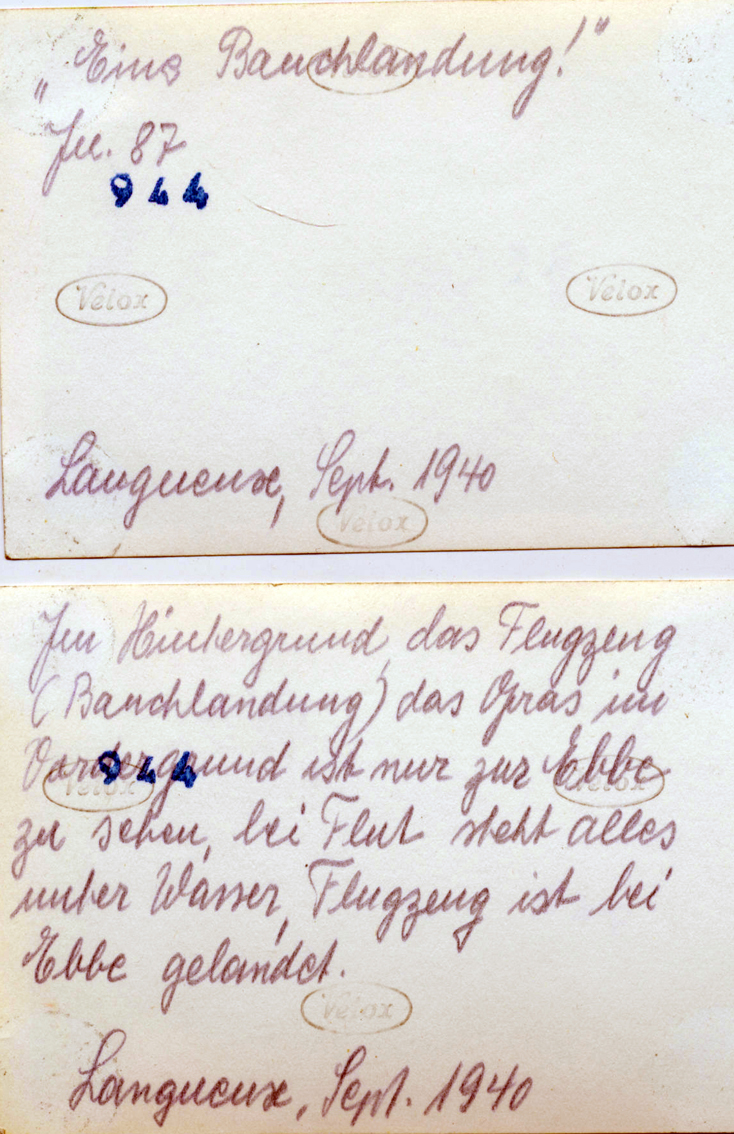 „Eine Bauchlandung!"
Ju. 87
944
Velox Velox
Langueux, Sept. 1940
Velox
Im Hintergrund, das Flugzeug
(Bauchlandung) das Gras im
Vordergrund ist nur zur Ebbe
944
Velox Velox
zu sehen, bei Flut steht alles
unter Wasser, Flugzeug ist bei
Ebbe gelandet.
Velox
Langueux, Sept. 1940